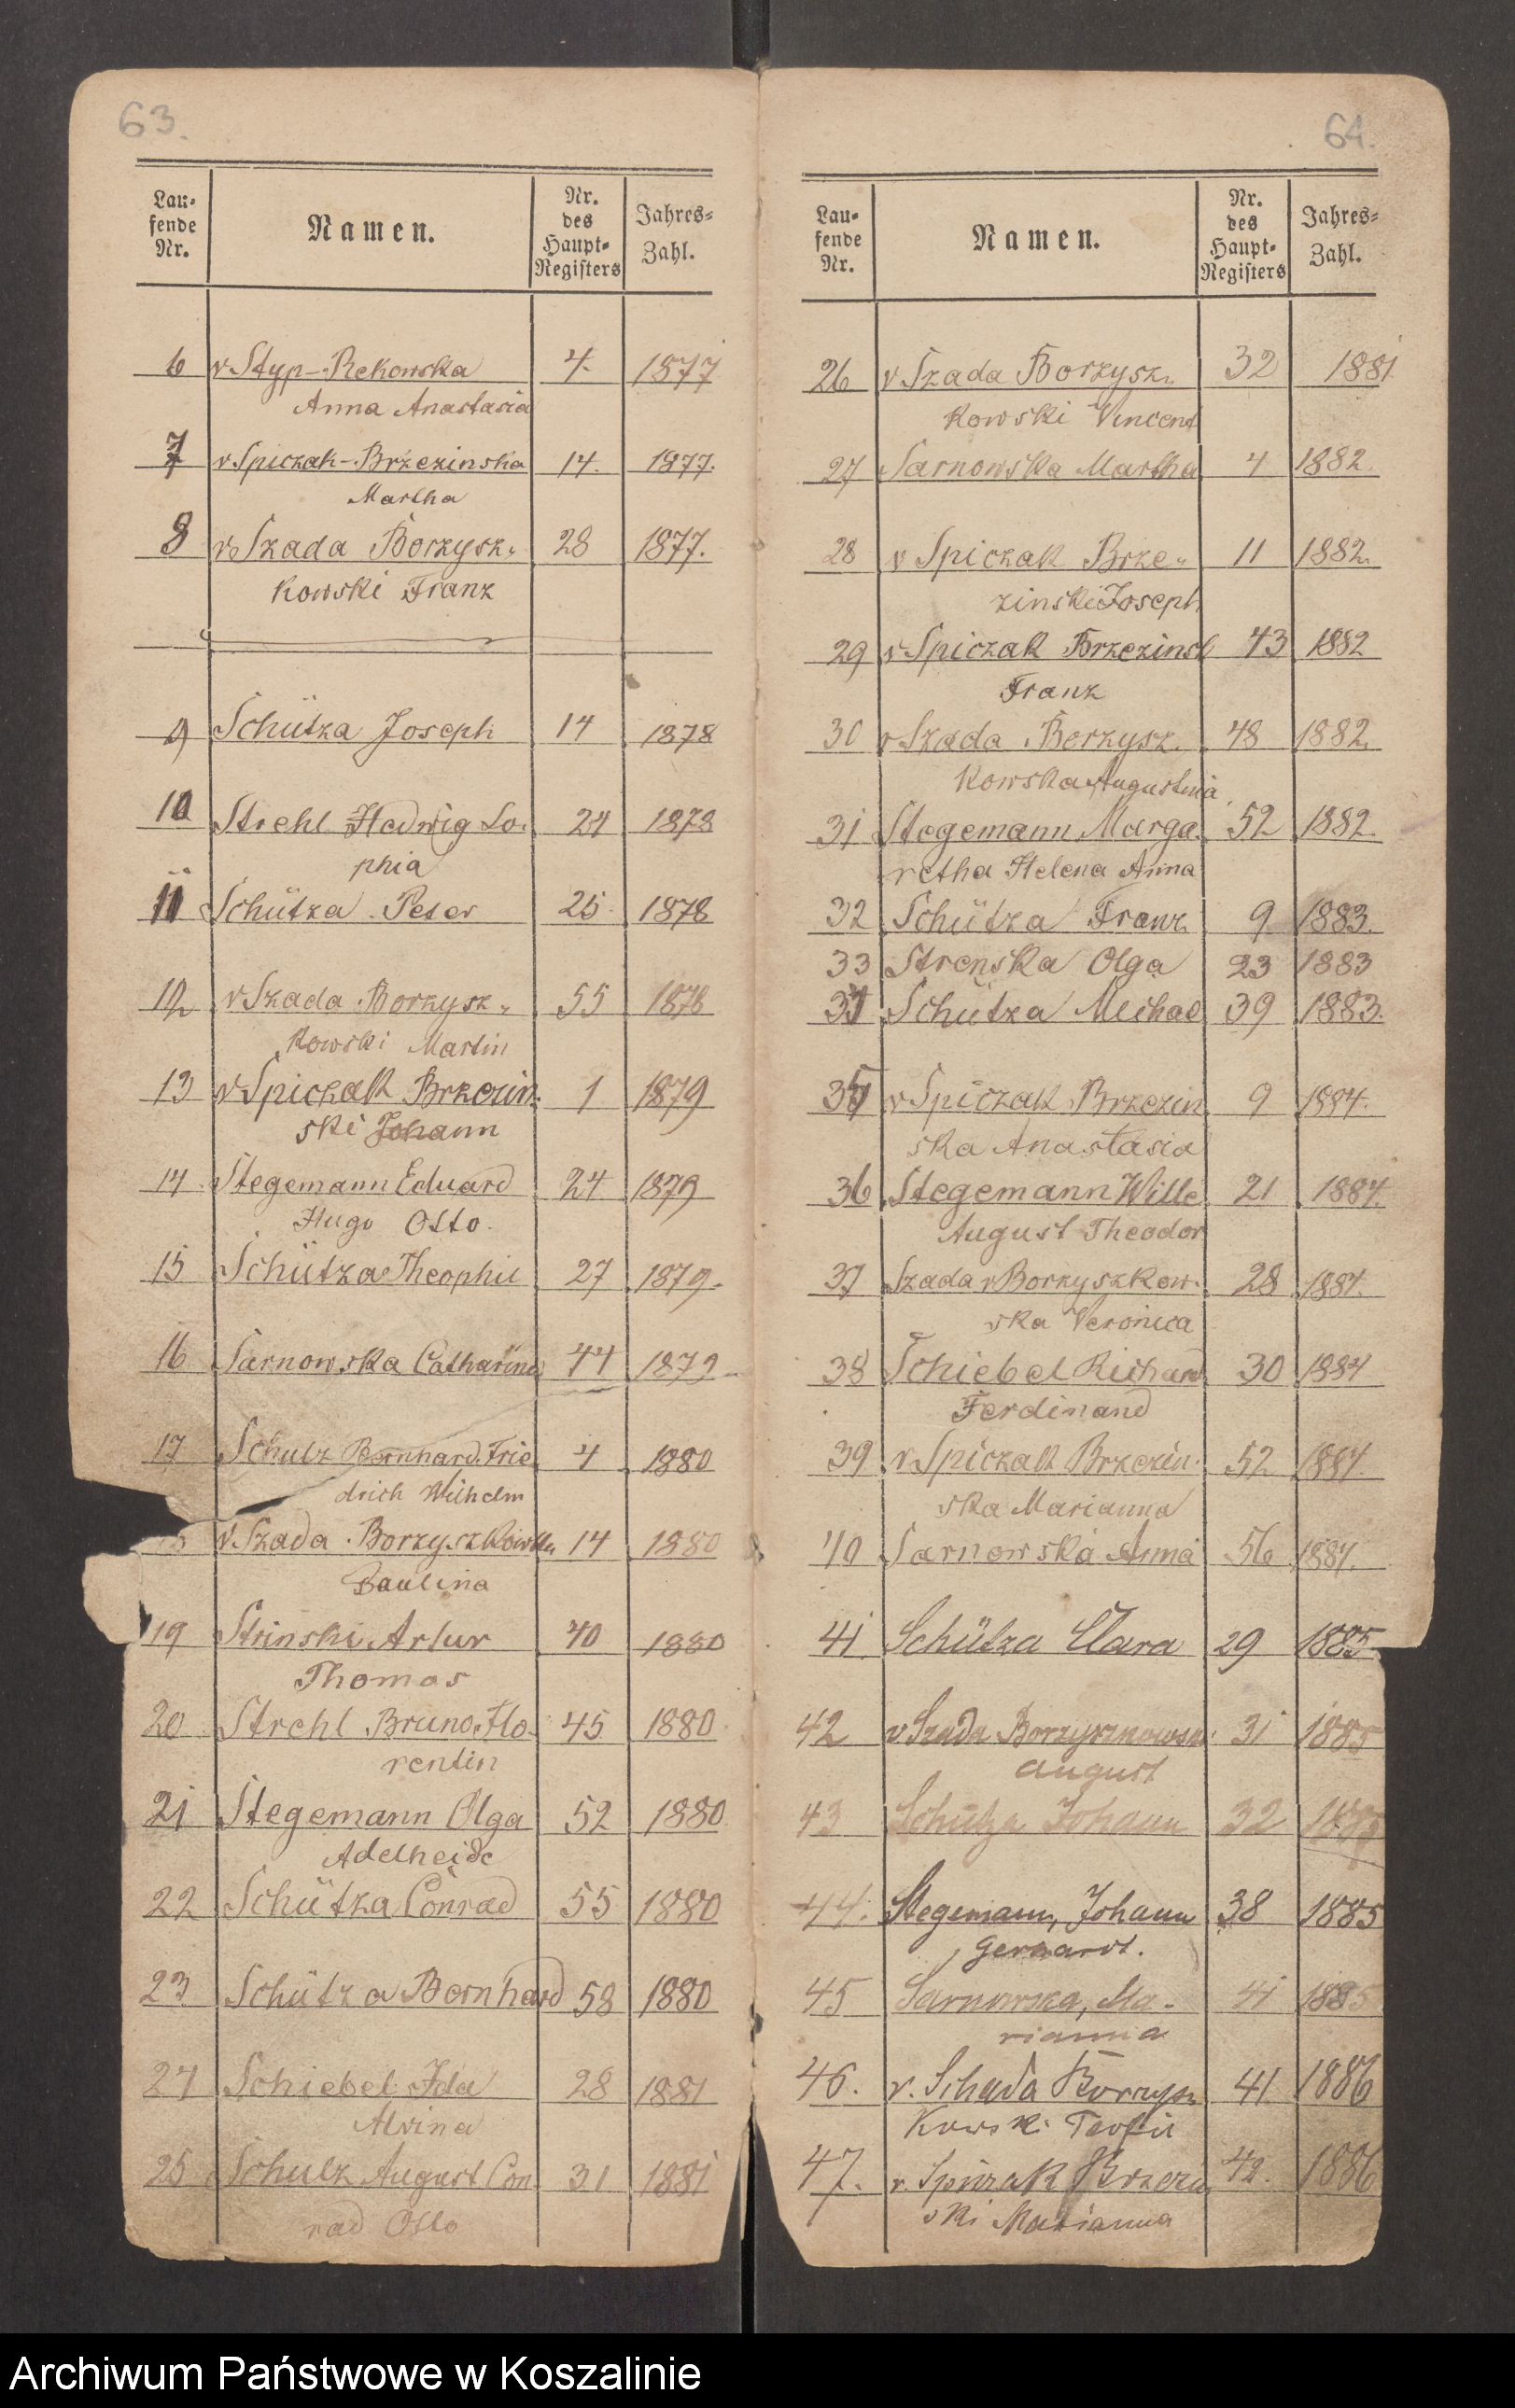 63.
Lau-
fende
Nr.
Namen.
Nr.
des
Haupt-
Registers
Jahres-
Zahl.
6 v Styp-Rekowska 4. 1877
Anna Anastasia
7 v Spiczak-Brzezinska 14. 1877.
Martha
8 v Szada Borzysz- 28 1877.
kowski Franz
9 Schütza Joseph 14 1878
10 Strehl Hedwig So- 24 1878
phia
11 Schütza Peter 25 1878
12 v Szada Borzysz- 55 1878
kowski Martin
13 v Spiczak Brzezin- 1 1879
ski Johann
14 Stegemann Eduard 24 1879
Hugo Otto.
15 Schütza Theophil 27 1879.
16 Sarnowska Catharina 44 1879
17 Schulz Bernhard Frie 4 1880
drich Wilhelm
v Szada Borzyszkowska 14 1880
Paulina
19 Strinski Artur 40 1880
Thomas
20 Strehl Bruno Flo- 45 1880
rentin
21 Stegemann Olga 52 1880
Adelheide
22 Schütza Conrad 55 1880
23 Schütza Bernhard 58 1880
24 Schiebel Ida 28 1881
Alvina
25 Schulz August Con 31 1881
rad Otto
64.
Lau-
fende
Nr.
Namen.
Nr.
des
Haupt-
Registers
Jahres-
Zahl.
26 v Szada Borzysz- 32 1881
kowski Vincent
27 Sarnowska Martha 4 1882.
28 v Spiczak Brze- 11 1882.
zinski Joseph
29 v Spiczak Brzezinsk 43 1882
Franz
30 v Szada Borzysz- 48 1882.
kowska Augustina
31 Stegemann Marga- 52 1882.
retha Helena Anna
32 Schütza Franz 9 1883.
33 Strenska Olga 23 1883
34 Schütza Michael 39 1883.
35 v Spiczak Brzezin 9 1884.
ska Anastasia
36 Stegemann Wille 21 1884.
August Theodor
37 Szada v Borzyszkow- 28 1884.
ska Veronica
38 Schiebel Richard 30 1884
Ferdinand
39 v Spiczak Brzezin- 52 1884.
ska Marianna
40 Sarnowska Anna 56 1884.
41 Schütza Clara 29 1885
42 v Szada Borzysznowski 31 1885
August
43 Schütza Johann 32 1885
44. Stegemann, Johann 38 1885
Gerhardt.
45 Sarnowska, Ma- 41 1885
rianna
46. v. Schada Borzysz 41 1886
Kowski Teofil
47. v. Spiczak Brzezin 42. 1886
ski Marianna
Archiwum Państwowe w Koszalinie